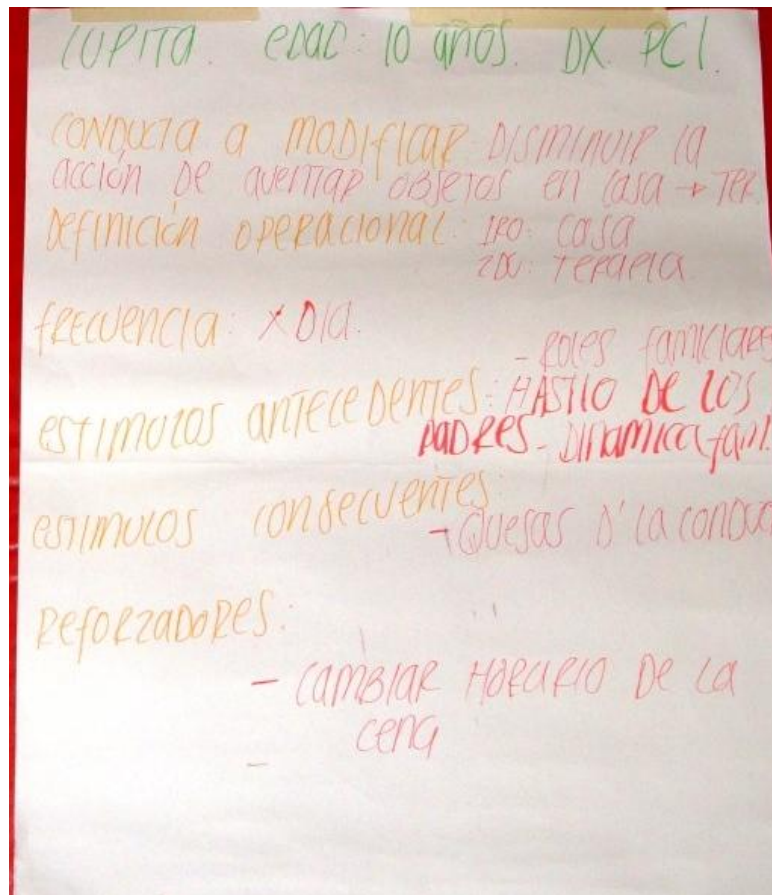 LUPITA. EDAD: 10 AÑOS. DX. PCI.
CONDUCTA A MODIFICAR: DISMINUIR LA
ACCIÓN DE AVENTAR OBJETOS EN CASA + TER.
DEFINICIÓN OPERACIONAL: 1RO: CASA
2DO: TERAPIA.
FRECUENCIA: X DIA.
- ROLES FAMILIARES
ESTIMULOS ANTECEDENTES: HASTIO DE LOS
PADRES - DINAMICA FAM.
ESTIMULOS CONSECUENTES:
- QUEJAS D' LA CONDUC
REFORZADORES:
- CAMBIAR HORARIO DE LA
CENA
-